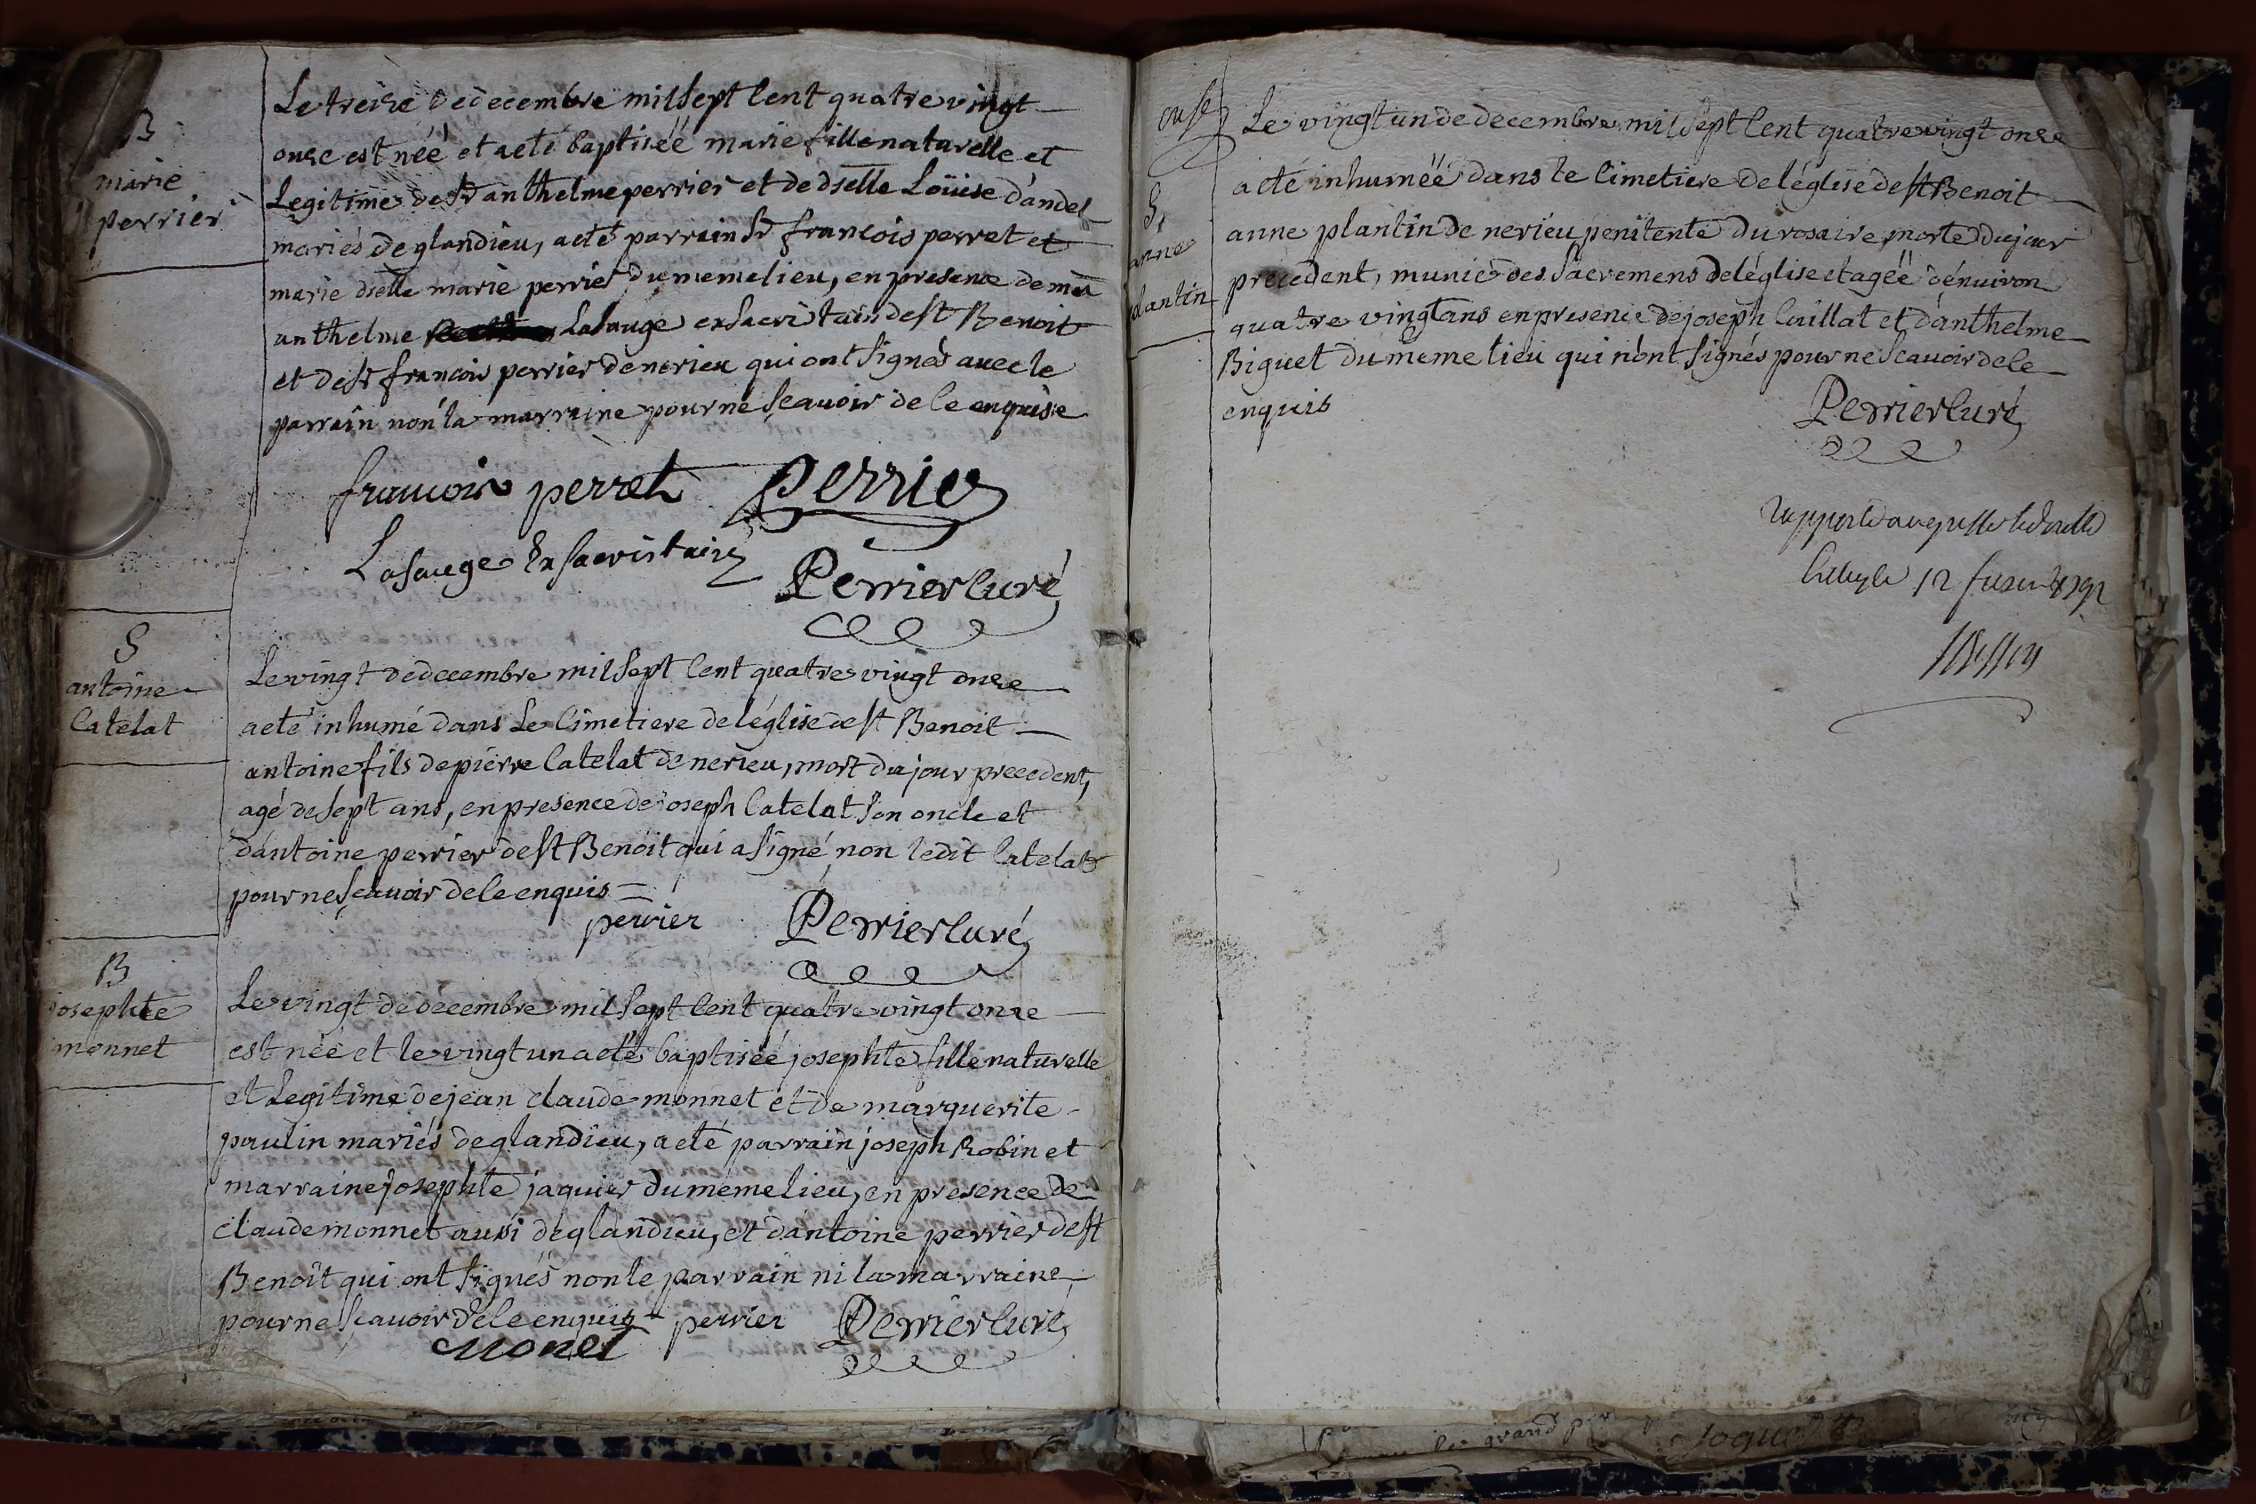 B
marie
perrier
Le treize de decembre mil sept cent quatre vingt
onze est néé et a eté baptiséé marie fille naturelle et
Legitime de sr anthelme perrier et de dselle Loüise d'andel
mariés de glandieu, a eté parrain sr francois perret et
marie dselle marie perrier du meme lieu, en presence de
anthelme Lasauge exsacristain de st Benoit
et de sr francois perrier de nerieu qui ont signés avec le
parrain non la marraine pour ne scavoir de ce enquise
francois perret perrier
Lasauge Ex sacristain
Perrier curé
S
antoine
Catelat
Le vingt de decembre mil sept cent quatre vingt onze
a eté inhumé dans Le Cimetiere de léglise de st Benoit
antoine fils de pierre Catelat de nerieu, mort du jour precedent,
agé de sept ans, en presence de joseph Catelat son oncle et
d'antoine perrier de st Benoit qui a signé non ledit Catelat
pour ne scavoir de ce enquis
perrier Perrier curé
B
josephte
monnet
Le vingt de decembre mil sept cent quatre vingt onze
est néé et le vingt un a eté baptiséé josephte fille naturelle
et Legitime de jean claude monnet et de marguerite
paulin mariés de glandieu, a eté parrain joseph Robin et
marraine josephte jaquier du même Lieu, en presence de
claude monnet aussi de glandieu, et d'antoine perrier de st
Benoit qui ont signés non le parrain ni la marraine
pour ne scavoir de ce enquis perrier Perrier curé
Monet
onse
S
anne
plantin
Le vingt un de decembre mil sept cent quatre vingt onze
a eté inhumëé dans le Cimetiere de léglise de st Benoit
anne plantin de nerieu penitente du rosaire, morte du jour
precedent, munie des sacremens de léglise et agëe d'énuiron
quatre vingt ans en presence de joseph Caillat et d'anthelme
Biguet du meme lieu qui n'ont signés pour ne scavoir de ce
enquis
Perrier curé
Rapporté au greffe
Belley le 12
grand